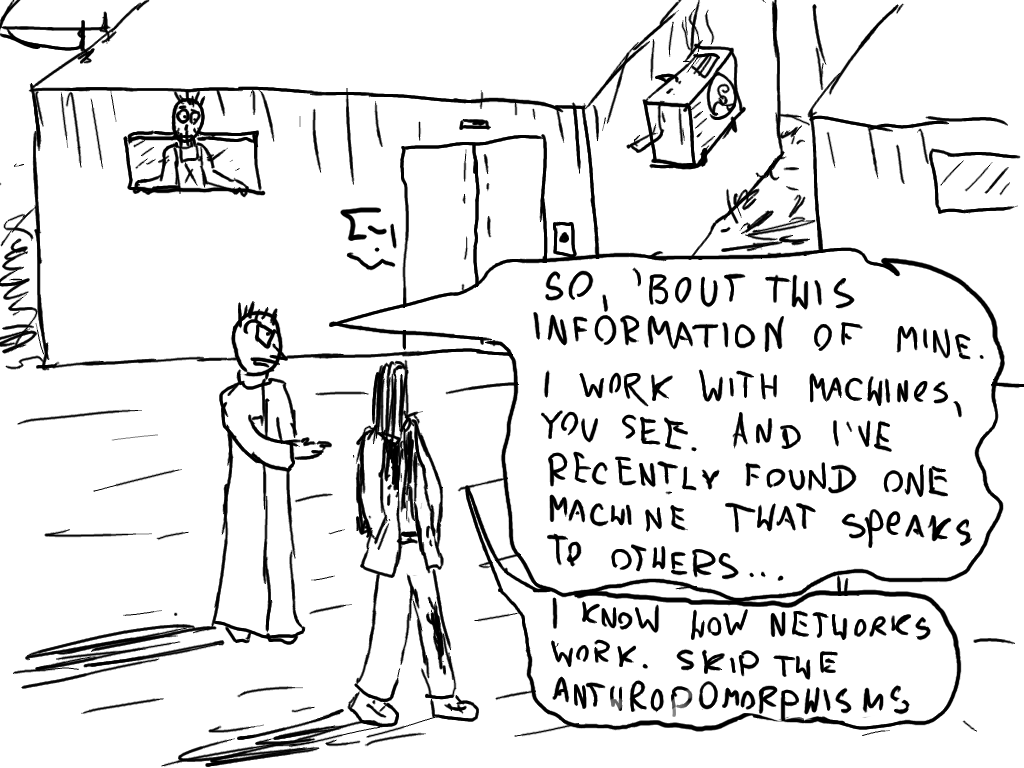 SO, 'BOUT THIS
INFORMATION OF MINE.
I WORK WITH MACHINES,
YOU SEE. AND I'VE
RECENTLY FOUND ONE
MACHINE THAT SPEAKS
TO OTHERS...
I KNOW HOW NETWORKS
WORK. SKIP THE
ANTHROPOMORPHISMS